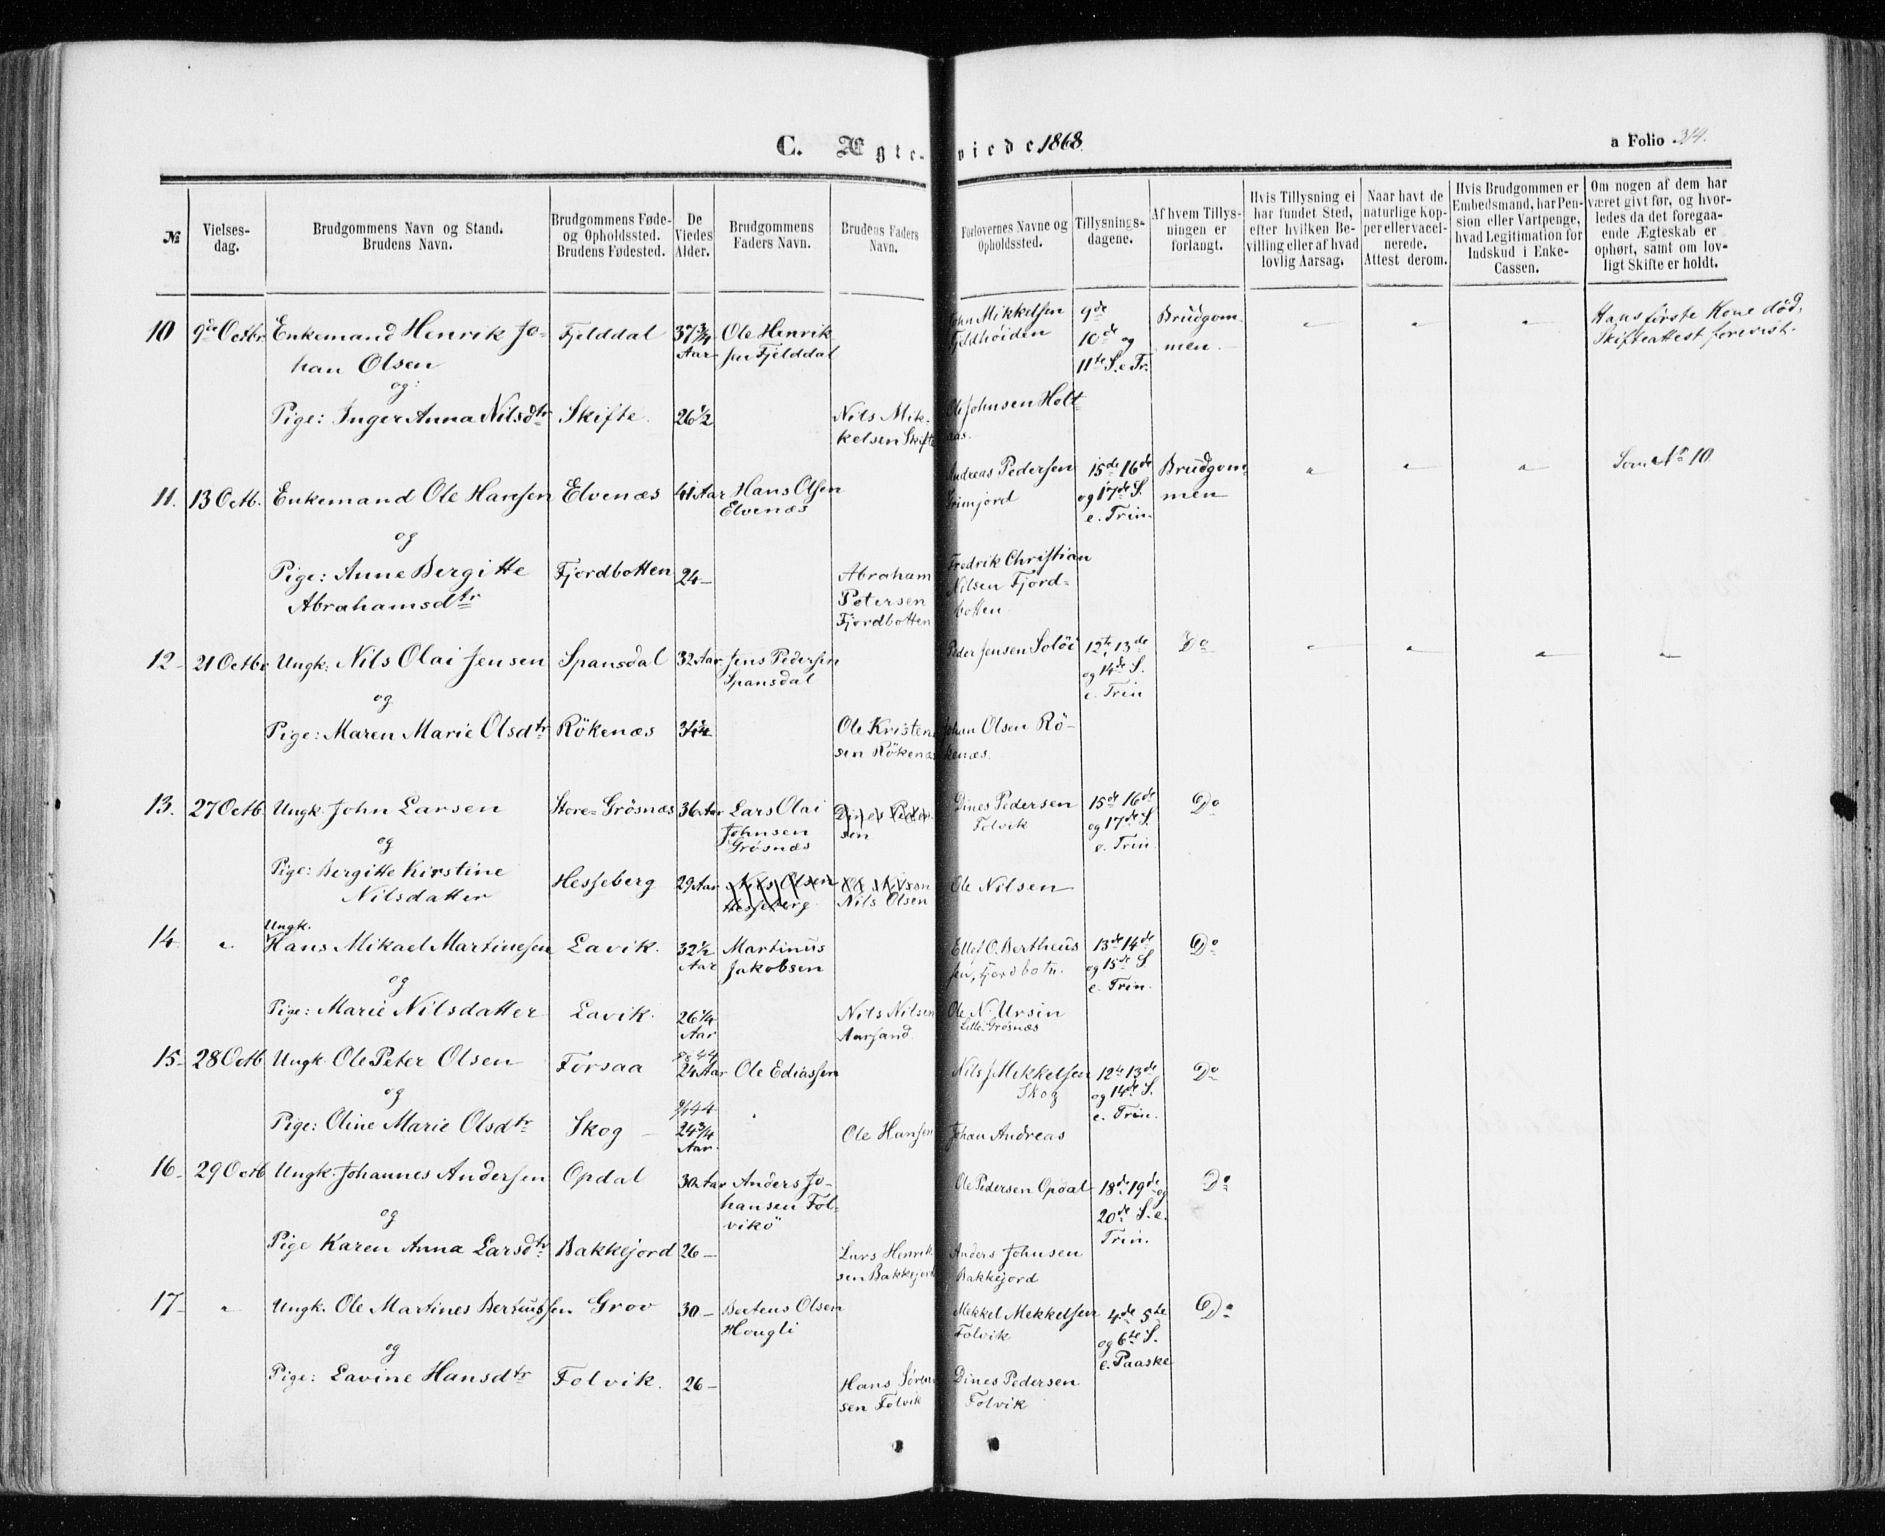 C. Ægte- viede 1868. a Folio 314.
№
Vielses-dag.
Brudgommens Navn og Stand.
Brudens Navn.
Brudgommens Føde- og Opholdssted.
Brudens Fødested.
De Viedes Alder.
Brudgommens Faders Navn.
Brudens Faders Navn.
Forlovernes Navne og Opholdssted.
Tillysnings-dagene.
Af hvem Tillys-ningen er forlangt.
Hvis Tillysning ei har fundet Sted, efter hvilken Be-villing eller af hvad lovlig Aarsag.
Naar havt de naturlige Kop-per eller vacci-nerede. Attest derom.
Hvis Brudgommen er Embedsmand, har Pen-sion eller Vartpenge, hvad Legitimation for Indskud i Enke-Cassen.
Om nogen af dem har været givt før, og hvor-ledes da det foregaa-ende Ægteskab er ophørt, samt om lov-ligt Skifte er holdt.
10 9de Octbr. Enkemand Henrik Jo- Fjelddal 37 3/4 Ole Henrik John Mikkelsen 9de Brudgom- " " " Hans første Kone død,
han Olsen Aar sen Fjelddal Fjeldhøiden 10de og men. Skifteattest forevist.
og: 11te S. e. Tr.
Pige: Inger Anna Nilsdtr Skifte. 26 1/2 Nils Mik- Ole Johnsen Holt-
kelsen Skifte aas.
11. 13 Octb. Enkemand Ole Hansen Elvenæs 41 Aar Hans Olsen Andreas Pedersen 15de 16de Brudgom- " " " Som No 10
Elvenæs og 17de S. men
e. Trin.
og
Pige: Anne Bergitte Fjordbotten 24 - Abraham Fredrik Christian
Abrahamsdtr Petersen Nilsen Fjord-
Fjordbotten botten.
12 - 21 Octbr Ungk: Nils Olai Jensen Spansdal 32 Aar Jens Pedersen Peder Jensen Soløi 12te 13de Do " " " "
Spansdal og 14de S.
og e. Trin
Pige: Maren Marie Olsdtr Rökenæs Ole Kristen- Johan Olsen Rö-
sen Rökenæs kenæs.
13. 27 Octb. Ungk. John Larsen Store-Grösnæs 36 Aar Lars Olai Dines Peder- Dines Pedersen 15de 16de Do
Johnsen sen Folvik og 17de S.
og Grøsnæs e. Trin.
Pige: Bergitte Kirstine Hesseberg 29 Aar Nils Olsen Ole Nilsen Ole Nilsen
Nilsdatter Hesseberg Nils Olsen
14 " Ungk. Hans Mikael Martinesen Lavik. 32 1/2 Martinus Ellef O. Bertheus 13de 14de Do
Aar Jakobsen sen, Fjordbotn. og 15de S.
og e. Trin.
Pige: Marie Nilsdatter Lavik. 26 1/4 Nils Nilsen Ole N. Ursin
Aar Aarsand. Lille-Grøsnæs
15 - 28 Octb. Ungk. Ole Peter Olsen Forsaa 24 Aar Ole Ediassen Nils J Mekkelsen 12te 13de Do
Skog og 14de S.
og e. Trin.
Pige: Oline Marie Olsdtr Skog - 24 3/4 Ole Hansen Johan Andreas
Aar.
16 - 29 Octb Ungk. Johannes Andersen Opdal 30 Aar Anders Jo- Ole Pedersen Opdal 18de 19de og Do
hansen Fol- 20de S. e.
og vikö Trin.
Pige Karen Anna Larsdtr Bakkejord 26 - Lars Henrik- Anders Johnsen
sen Bakkejord Bakkejord
17 - " Ungk. Ole Martines Bertiussen Grov 30 - Bertens Olsen Mekkel Mekkelsen 4de 5te Do
Hougli Folvik og 6te S.
og e. Paaske
Pige: Lavine Hansdtr Folvik. 26 - Hans Sören- Dines Pedersen
sen Folvik Folvik